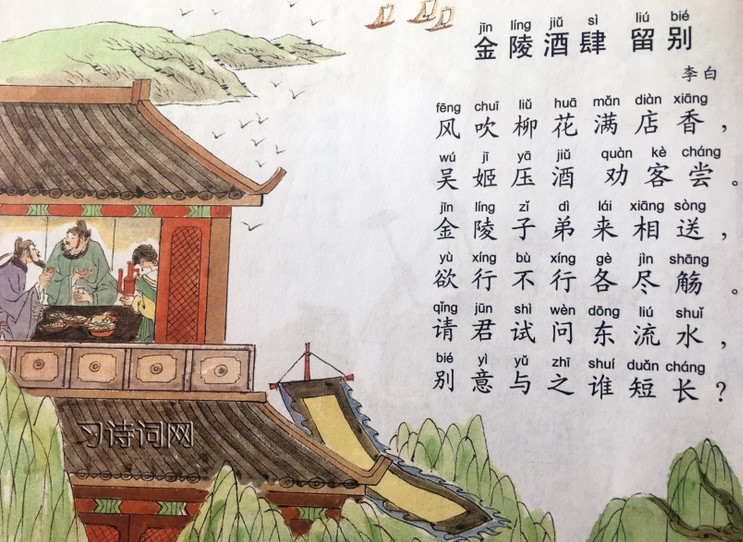 jīn líng jiǔ sì liú bié
金陵酒肆 留别
李白
fēng chuī liǔ huā mǎn diàn xiāng
风吹柳花满店香，
wú jī yā jiǔ quàn kè cháng
吴姬压酒 劝客尝。
jīn líng zǐ dì lái xiāng sòng
金陵子弟来相送，
yù xíng bù xíng gè jìn shāng
欲行不行各尽觞。
qǐng jūn shì wèn dōng liú shuǐ
请君试问东流水，
bié yì yǔ zhī shuí duǎn cháng
别意与之谁短长？
习诗词网